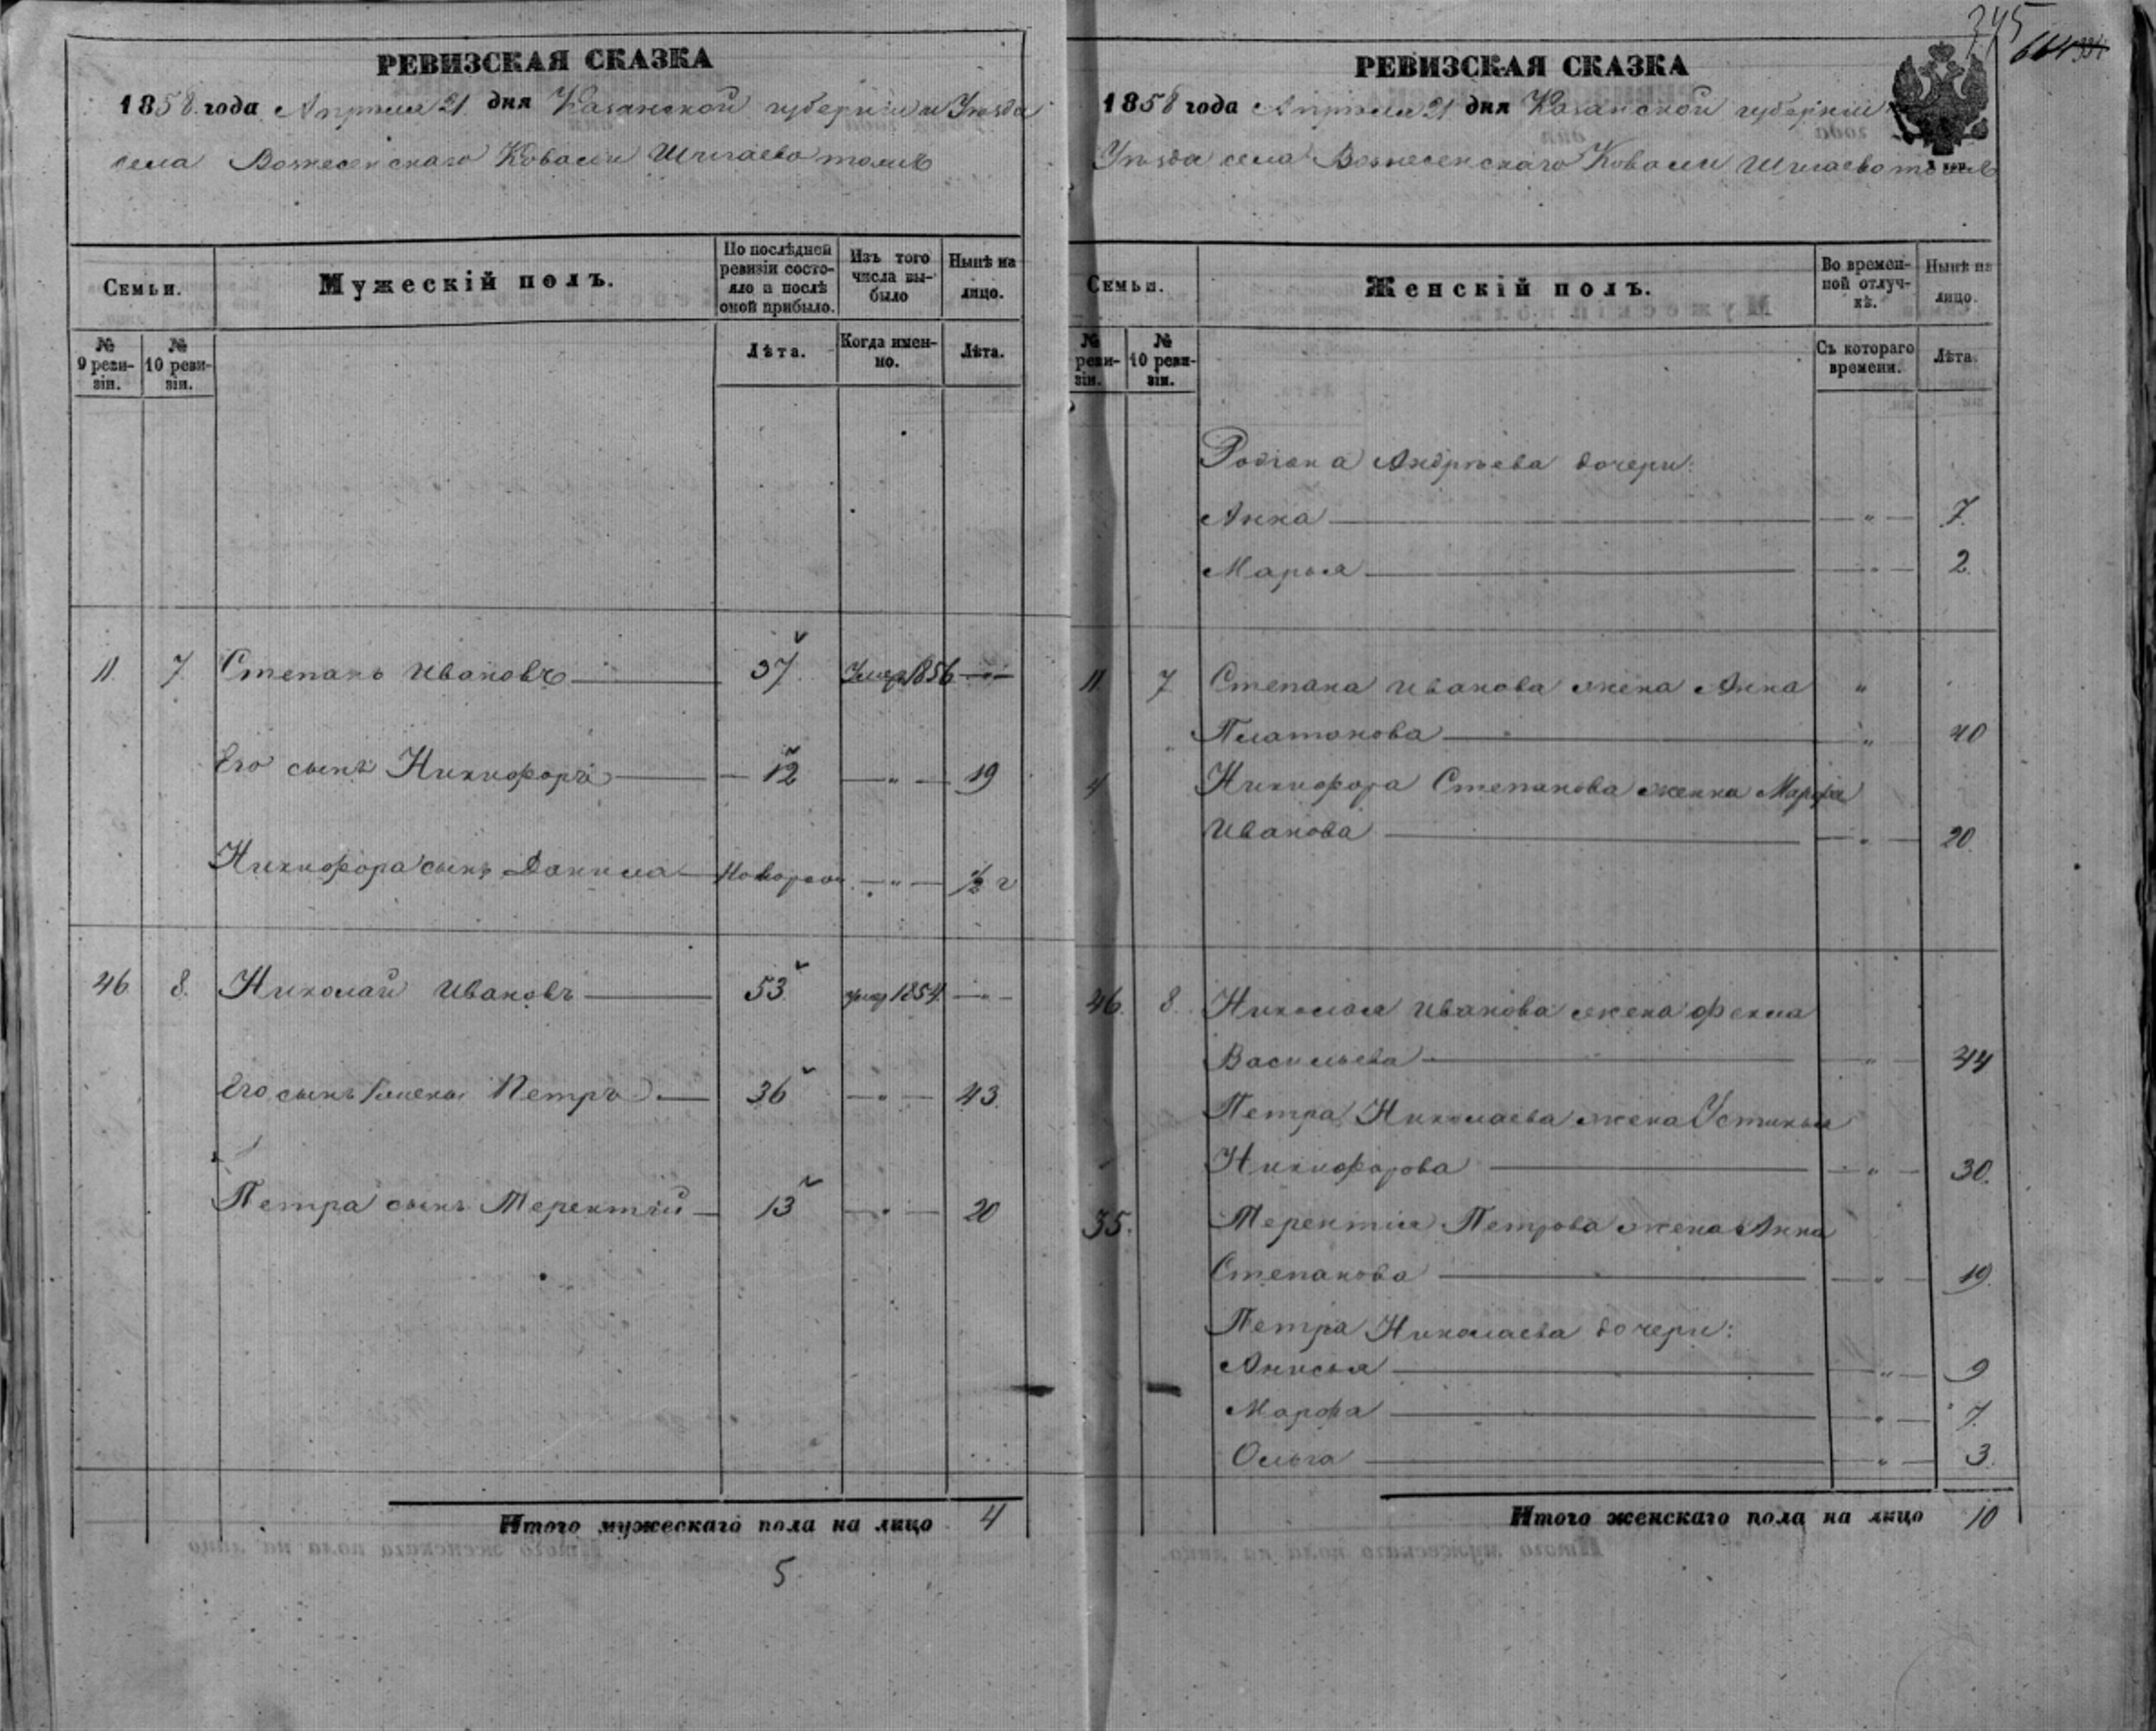 РЕВИЗСКАЯ СКАЗКА
1858. года Апреля 21 дня Казанской губернии и Уѣзда
села Вознесенскаго Ковали Шигаево тожъ
Семьи.
Мужескій полъ.
По послѣдней ревизіи состояло а послѣ оной прибыло.
Изъ того числа выбыло
Нынѣ на лицо.
№ 9 ревизіи.
№ 10 ревизіи.
Лѣта.
Когда именно.
Лѣта.
11. 7. Степанъ Ивановъ 37. Умер 1856 — " —
Его сынъ Никифоръ — 12 — " — 19
Никифора сынъ Данила Новорож — " — 1/2 г
46. 8. Николай Ивановъ 53. умер 1854. — " —
Его сынъ Петръ 36 — " — 43.
Петра сынъ Терентій 13 — " — 20
Итого мужескаго пола на лицо 4
5
345
РЕВИЗСКАЯ СКАЗКА
1858 года Апреля 21 дня Казанской губернии
Уѣзда села Вознесенскаго Ковали Шигаево тожъ
Семьи.
Женскій полъ.
Во временной отлучкѣ.
Нынѣ на лицо.
№ ревизіи.
№ 10 ревизіи.
Съ котораго времени.
Лѣта.
Родіона Андрѣева дочери:
Анна — " — 7.
Марья — " — 2.
11. 7 Степана Иванова жена Анна "
Платонова " 40
Никифора Степанова женна Марфа
Иванова — " — 20.
46. 8. Николая Иванова жена Фекла
Васильева — " — 44
Петра Николаева жена Устинья
Никифорова — " — 30.
35. Терентія Петрова жена Анна
Степанова — " — 19.
Петра Николаева дочери:
Анисья — " — 9
Марфа — " — 7.
Ольга — " — 3.
Итого женскаго пола на лицо 10